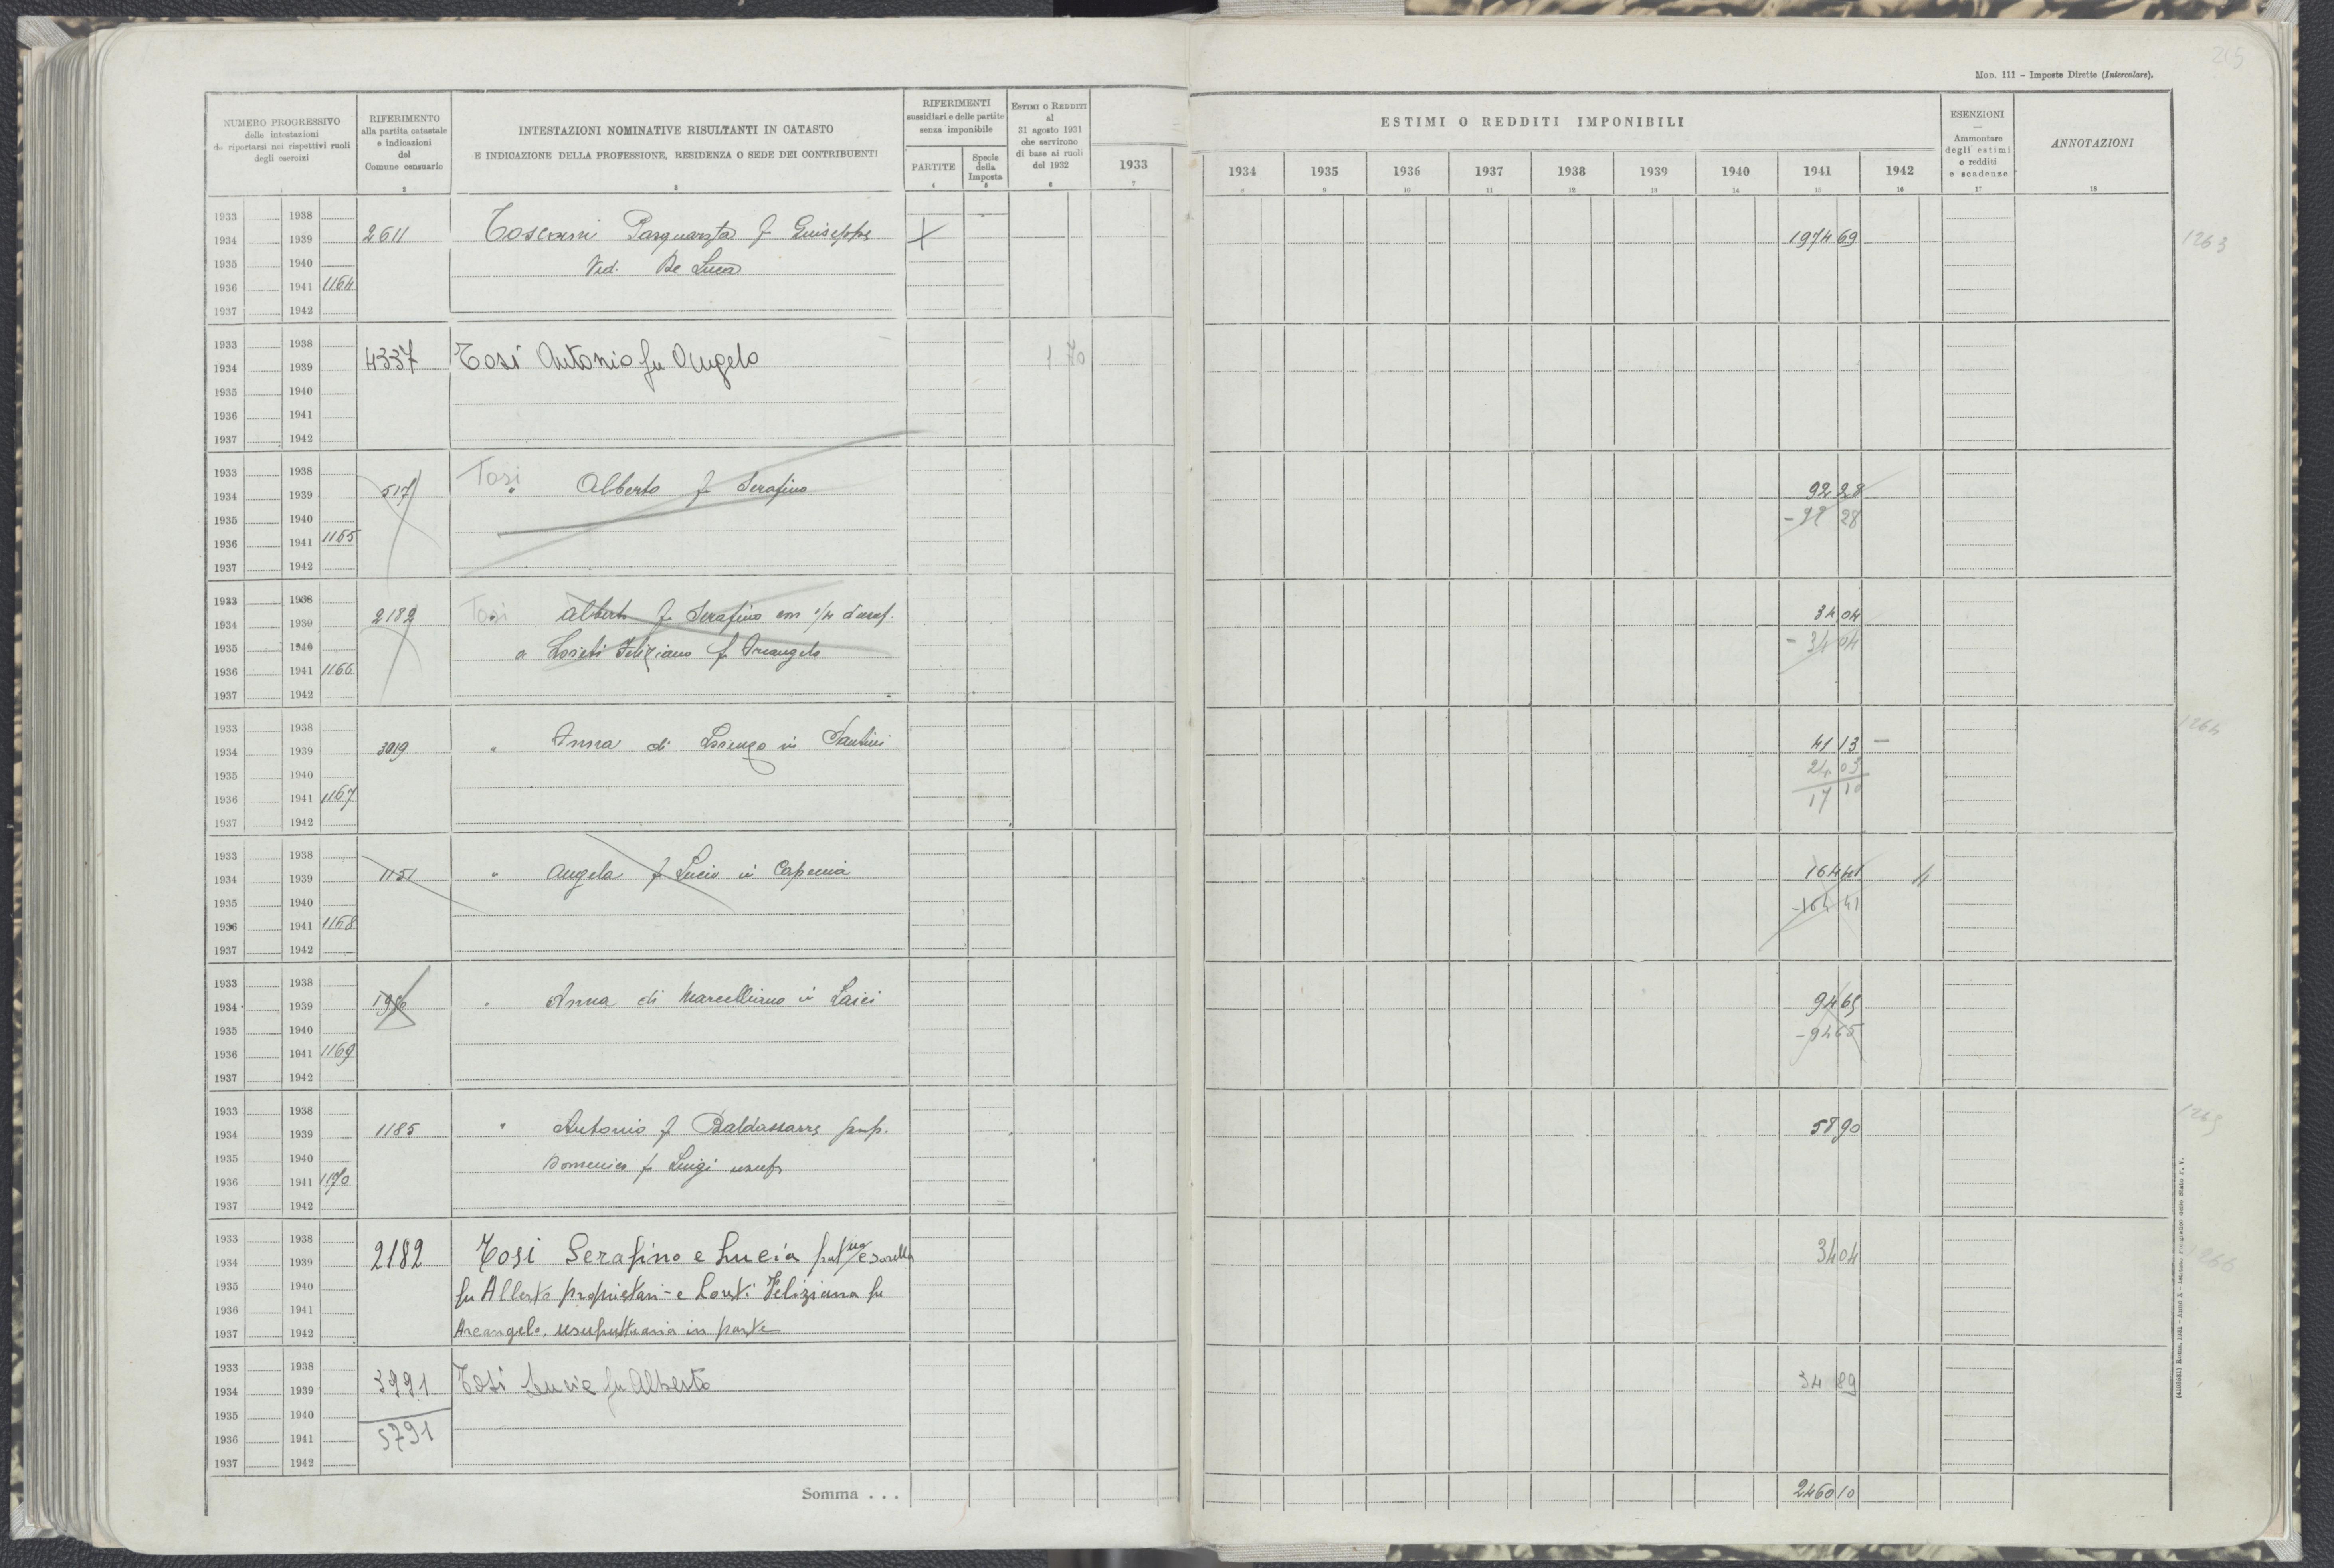 265
Mod. 111 – Imposte Dirette (Intercalare).
NUMERO PROGRESSIVO delle intestazioni da riportarsi nei rispettivi ruoli degli esercizi
RIFERIMENTO alla partita catastale e indicazioni del Comune censuario
INTESTAZIONI NOMINATIVE RISULTANTI IN CATASTO
E INDICAZIONE DELLA PROFESSIONE, RESIDENZA O SEDE DEI CONTRIBUENTI
RIFERIMENTI sussidiari e delle partite senza imponibile
PARTITE
Specie della Imposta
ESTIMI O REDDITI al 31 agosto 1931 che servirono di base ai ruoli del 1932
ESTIMI O REDDITI IMPONIBILI
1933 1934 1935 1936 1937 1938 1939 1940 1941 1942
ESENZIONI — Ammontare degli estimi o redditi e scadenze
ANNOTAZIONI
1 2 3 4 5 6 7 8 9 10 11 12 13 14 15 16 17 18
1933 1938
1934 1939 2611 Toscani Pasquarosa f Giuseppe X 1974 69 1263
1935 1940 Ved. De Luca
1936 1941 1164
1937 1942
1933 1938
1934 1939 4337 Tosi Antonio fu Angelo 1 70
1935 1940
1936 1941
1937 1942
1933 1938
1934 1939 517 Tosi " Alberto f Serafino 92 28
1935 1940 - 92 28
1936 1941 1165
1937 1942
1933 1938
1934 1939 2182 Tosi Alberto f Serafino con 1/4 d'usuf. 34 04
1935 1940 a Loreti Feliziano f Arcangelo - 34 04
1936 1941 1166
1937 1942
1933 1938
1934 1939 3019 " Anna di Lorenzo in Santini 41 13 – 1264
1935 1940 24 03
1936 1941 1167 17 10
1937 1942
1933 1938
1934 1939 1151 " Angela f Lucio in 164 41
1935 1940 - 164 41
1936 1941 1168
1937 1942
1933 1938
1934 1939 " Anna di Marcelliano in 94 65
1935 1940 - 94 65
1936 1941 1169
1937 1942
1933 1938
1934 1939 1185 " Antonio f Baldassarre prop. 58 90 1265
1935 1940 Domenico f Luigi usufr
1936 1941 1170
1937 1942
1933 1938
1934 1939 2182 Tosi Serafino e Lucia e sorella 34 04 1266
1935 1940 fu Alberto proprietari e Loreti Feliziana fu
1936 1941
1937 1942 Arcangelo, usufruttuaria in parte
1933 1938
1934 1939 3991 Tosi Lucia fu Alberto 34 89
1935 1940
1936 1941 5791
1937 1942
Somma . . . 2460 10